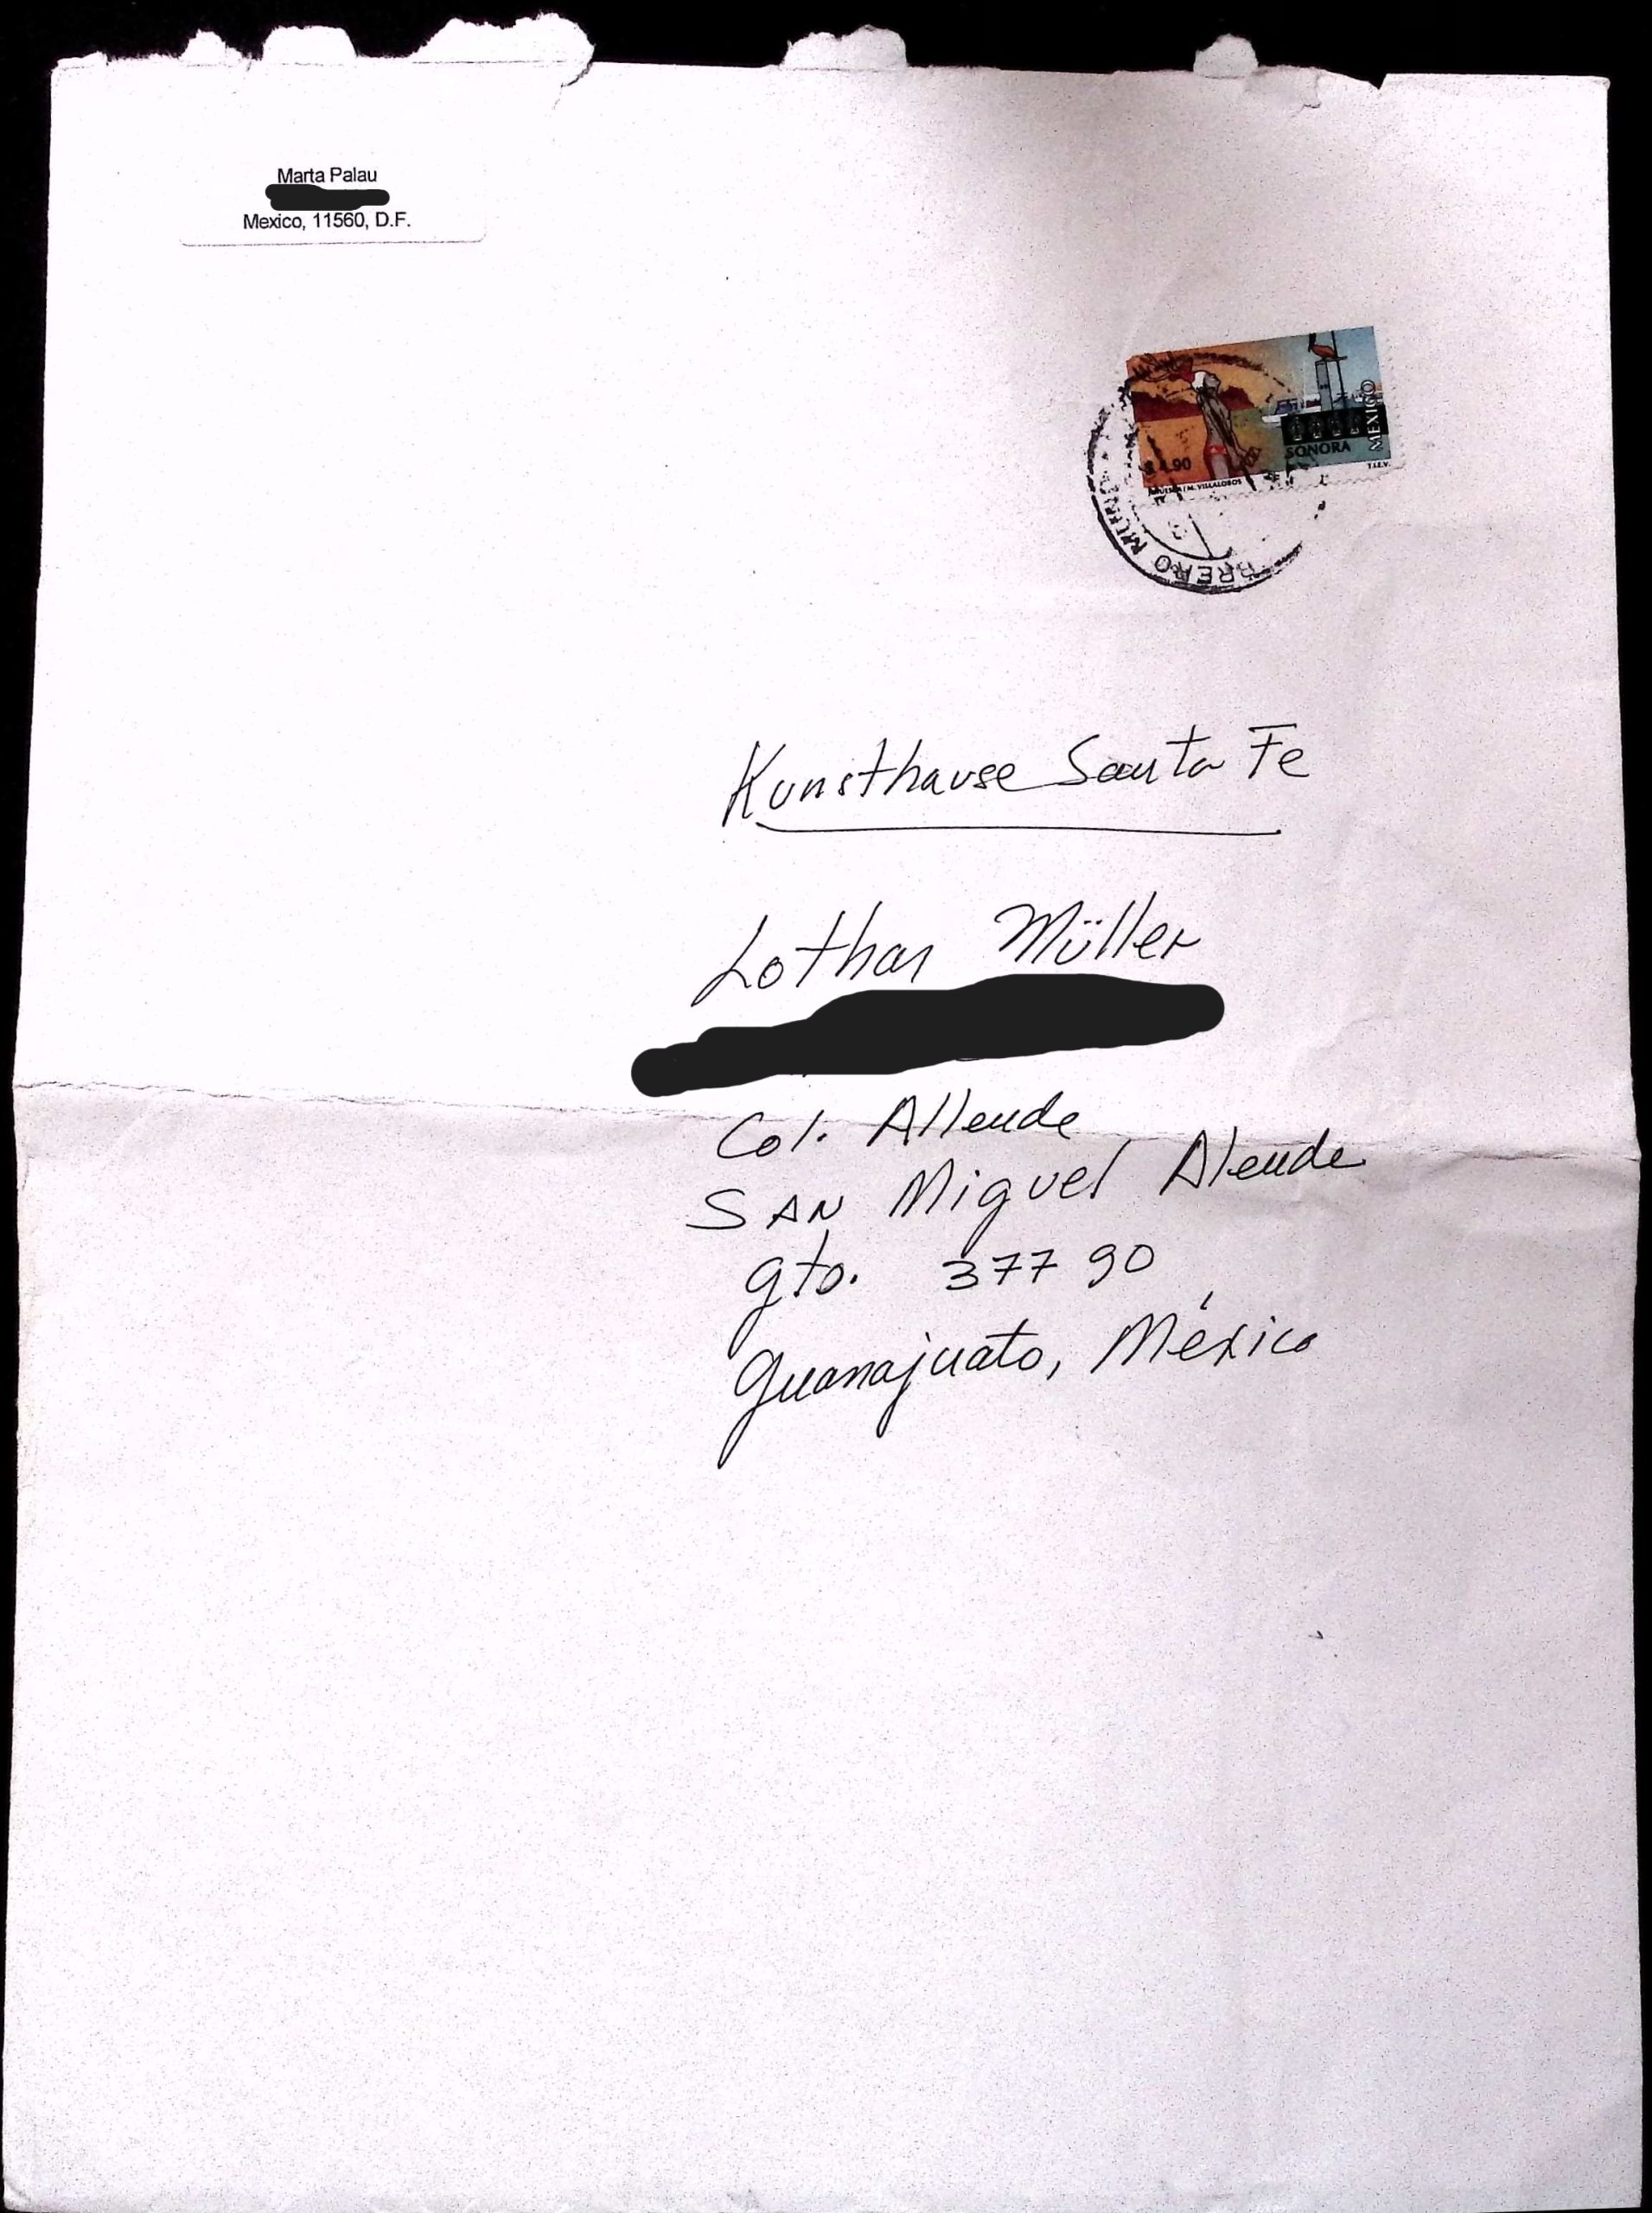 Marta Palau
Mexico, 11560, D.F.
$4.90
SONORA
MEXICO
M. VILLALOBOS
T.I.E.V.
Kunsthause Santa Fe
Lothar Müller
Col. Allende
SAN Miguel Alende
gto. 377 90
Guanajuato, México